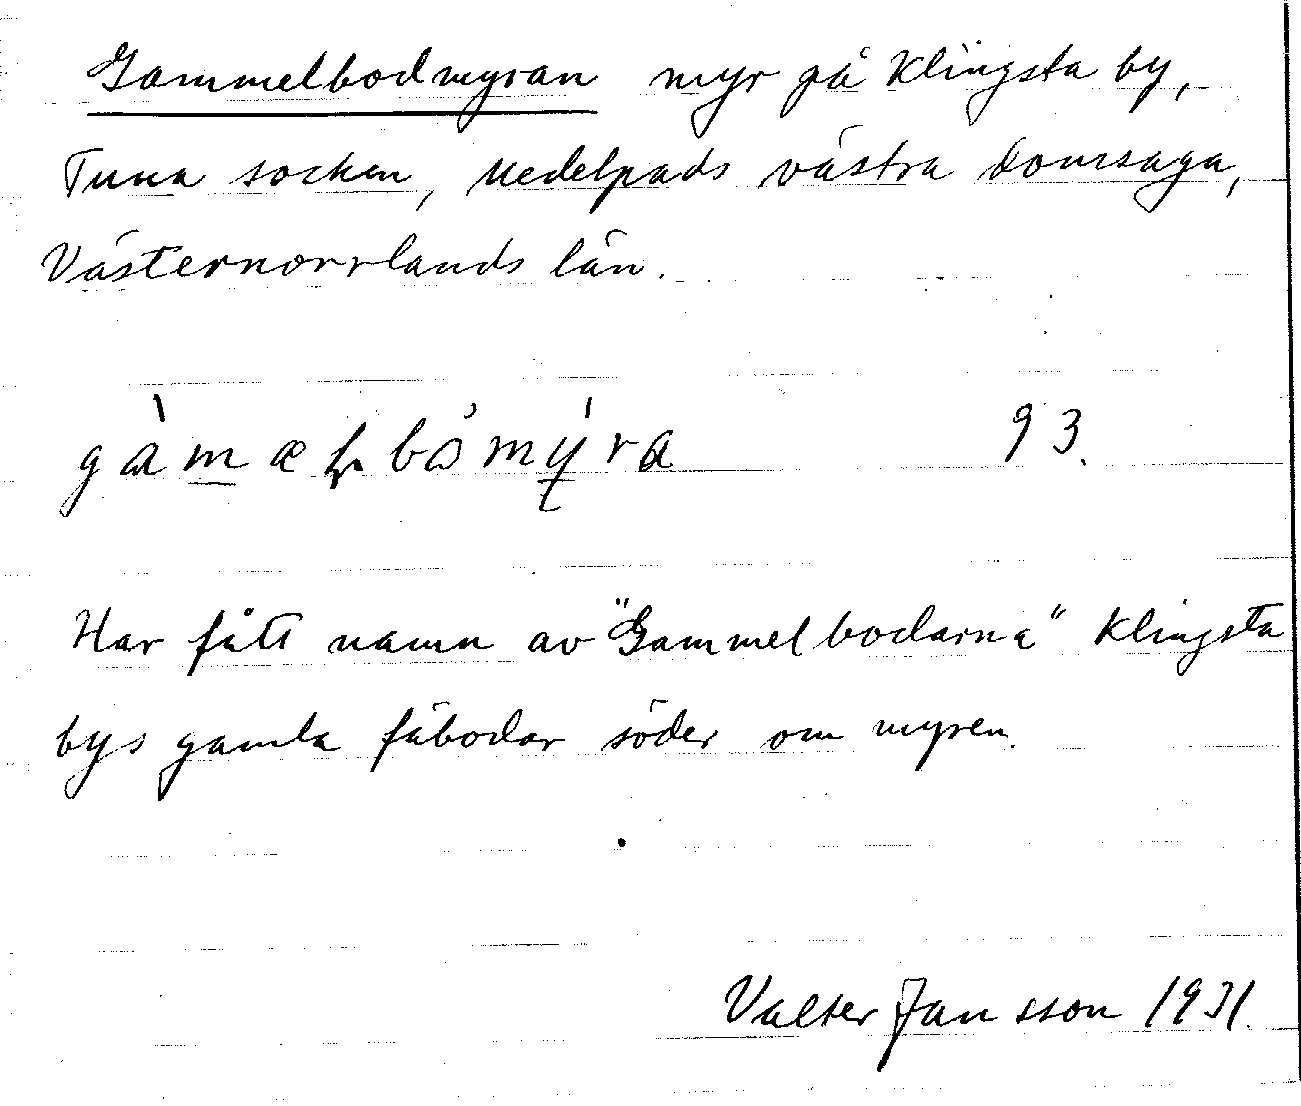 Gammelbodmyran myr på Klingsta by,
Tuna socken, Medelpads västra domsaga,
Västernorrlands län.
gàmæɽbómýra 93.
Har fått namn av "Gammelbodarna" Klingsta
bys gamla fäbodar söder om myren.
Valter Jansson 1931.